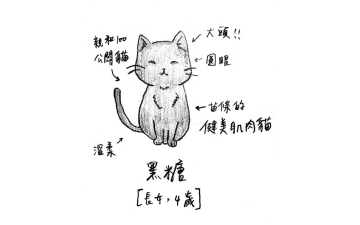 親和100
公關貓
大頭!!
圓眼
苗條的
健美肌肉貓
溫柔
黑糖
[長女,4歲]